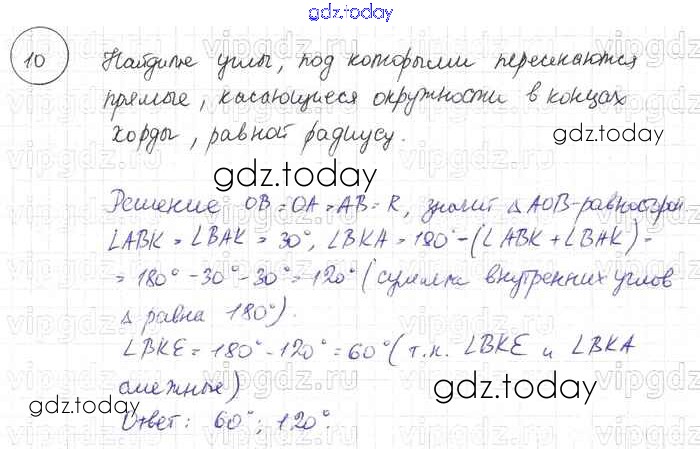 gdz.today
10 Найдите углы, под которыми пересекаются
прямые, касающиеся окружности в концах
хорды, равной радиусу.
gdz.today
gdz.today
Решение: OB = OA = AB = R, значит △ AOB - равносторон
∠ABK = ∠BAK = 30°, ∠BKA = 180° - (∠ABK + ∠BAK) =
= 180° - 30° - 30° = 120° (сумма внутренних углов
△ равна 180°).
∠BKE = 180° - 120° = 60° (т.к. ∠BKE и ∠BKA
смежные)
gdz.today
gdz.today
Ответ: 60°; 120°.
gdz.today